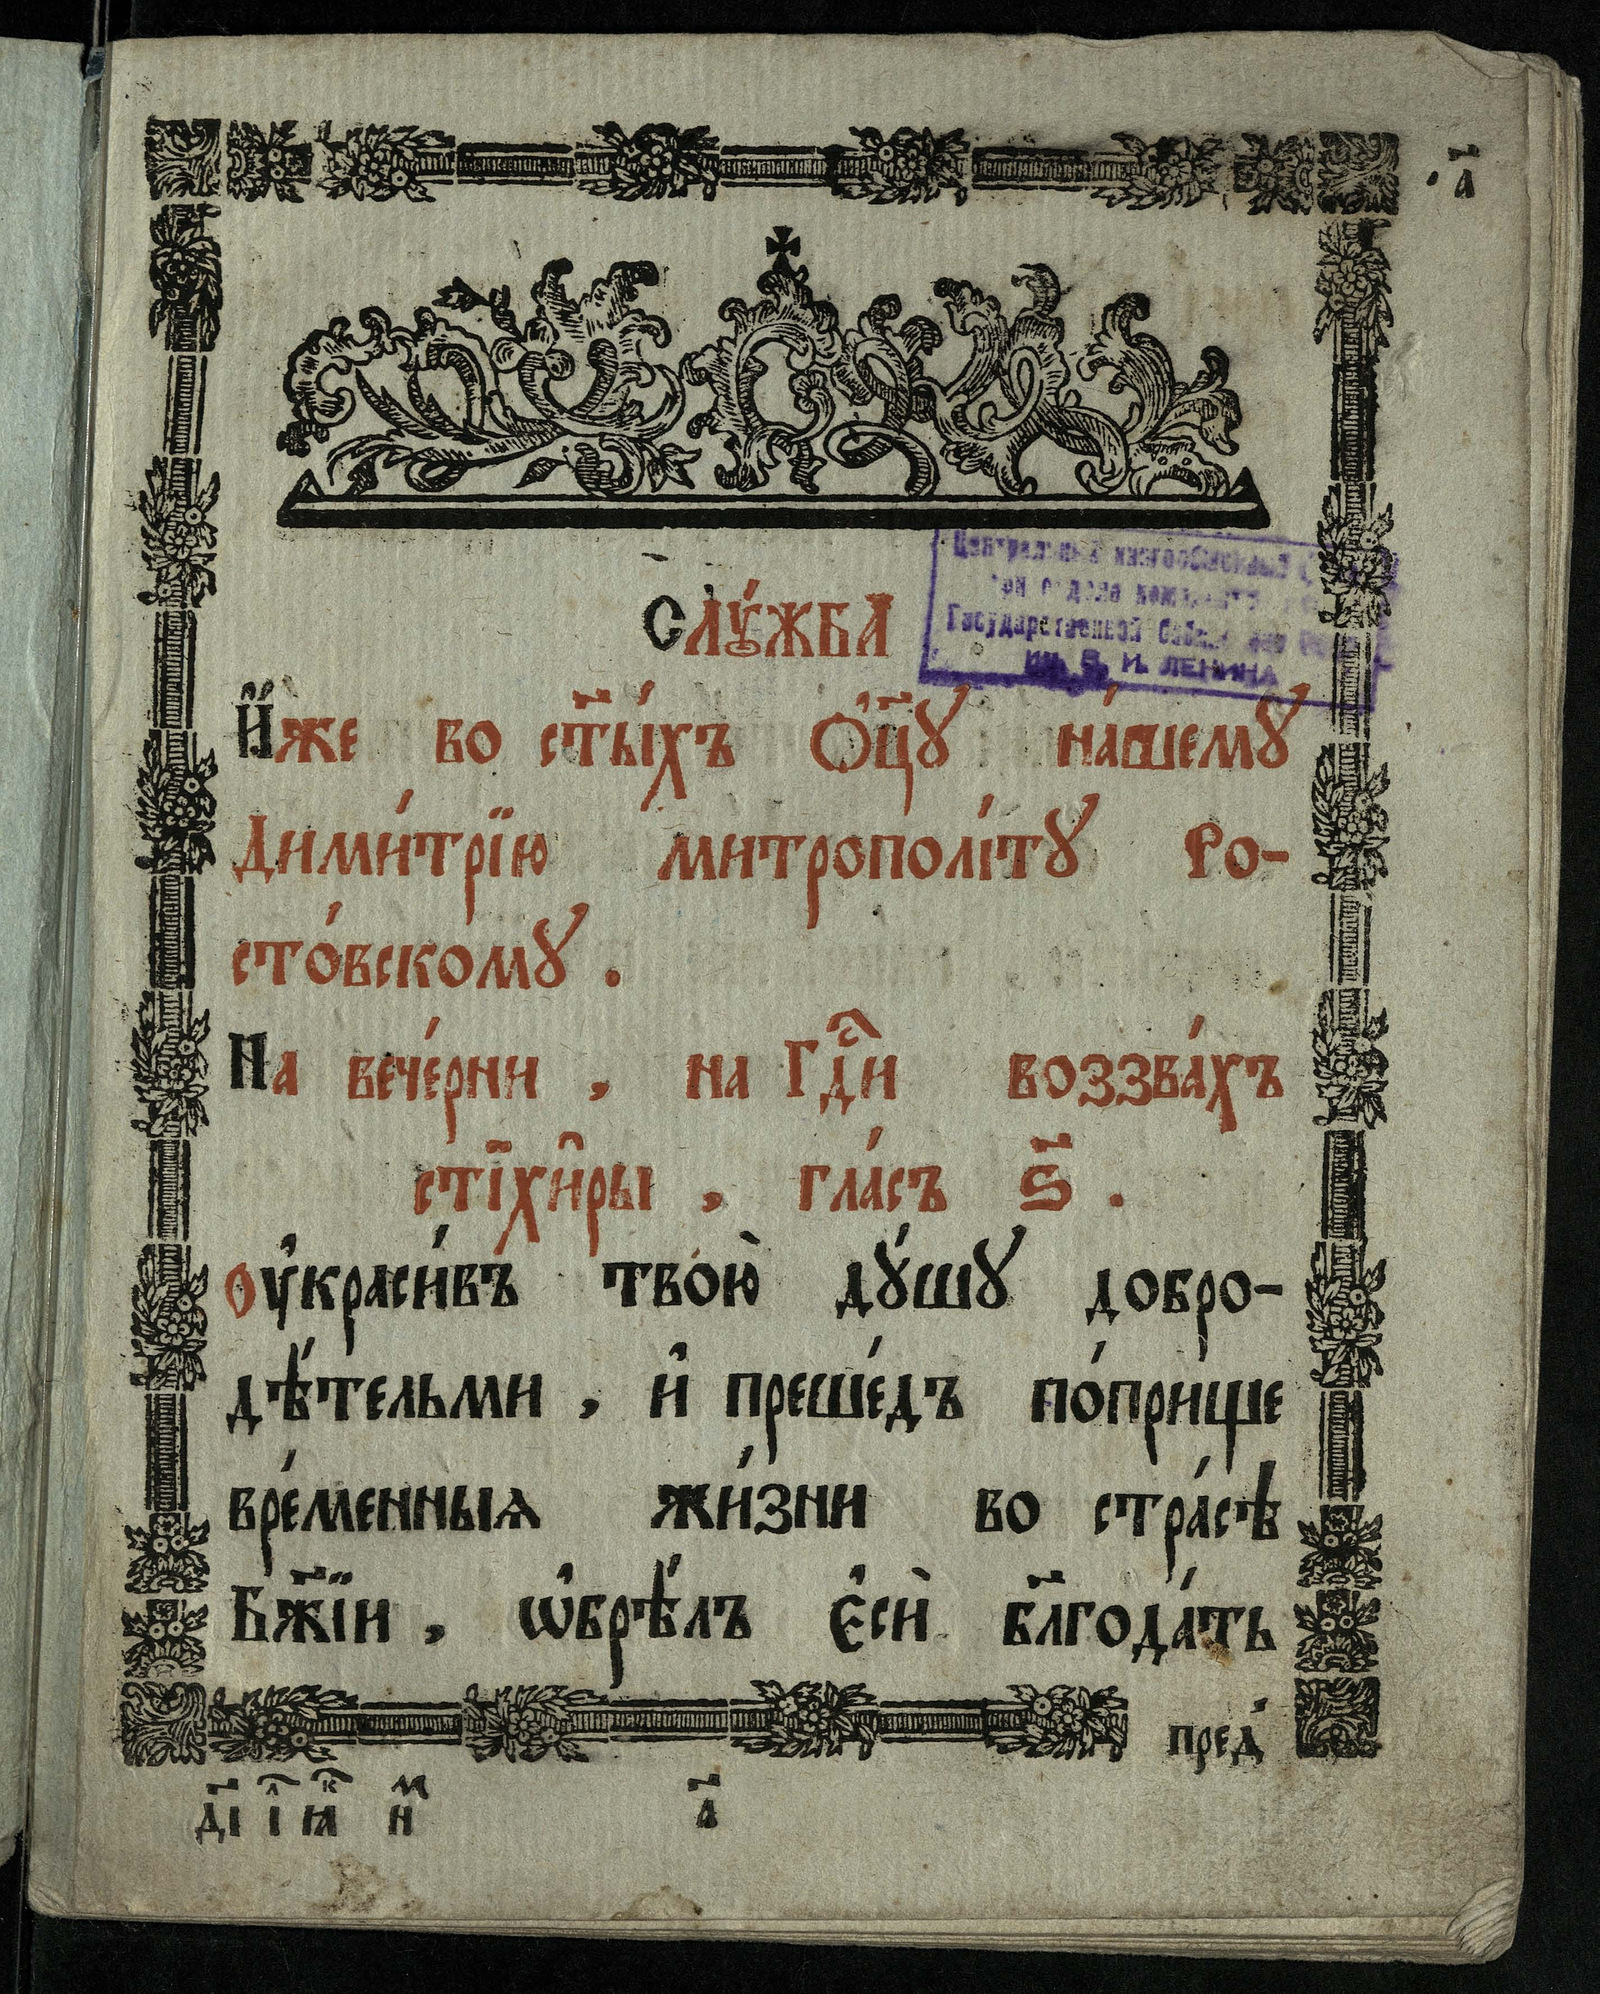 а҃
Слꙋ́жба
Центральный книгообменный
Государственной
им. В. И. ЛЕНИНА
И҆́же во ст҃ы́хъ ѻ҆ц҃ꙋ̀ на́шемꙋ
Дими́трїю митрополі́тꙋ Ро-
сто́вскомꙋ .
На вече́рни , на Гдⷭ҇и воззва́хъ
стїхи̑ры , гла́съ ѕ҃ .
Оу҆краси́въ твою̀ дꙋ́шꙋ добро-
дѣ́тельми , и҆ преше́дъ по́прище
вре́менныѧ жи́зни во стра́сѣ
Бж҃їи , ѡ҆брѣ́лъ є҆сѝ блг҃ода́ть
пред̾
а҃